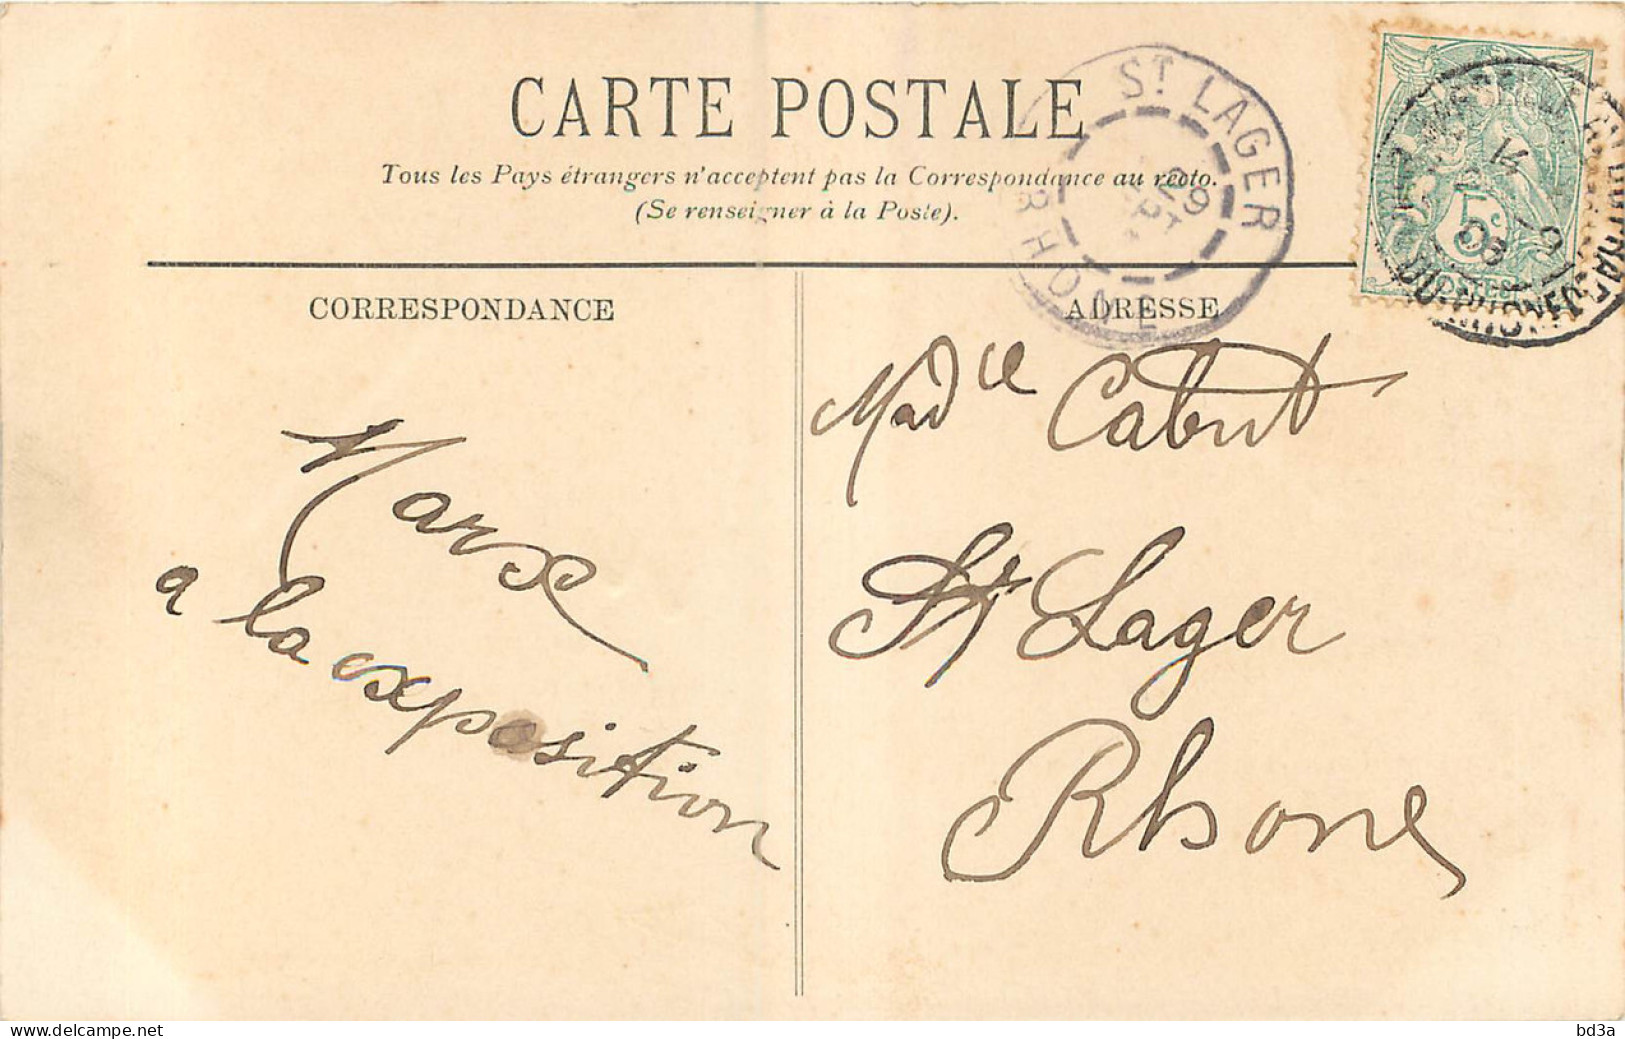 CARTE POSTALE
Tous les Pays étrangers n'acceptent pas la Correspondance au recto.
(Se renseigner à la Poste).
CORRESPONDANCE
ADRESSE
ST LAGER
RHONE
5c
POSTES
Madle Cabut
St Lager
Rhone
a la exposition
delcampe.net
bd3a